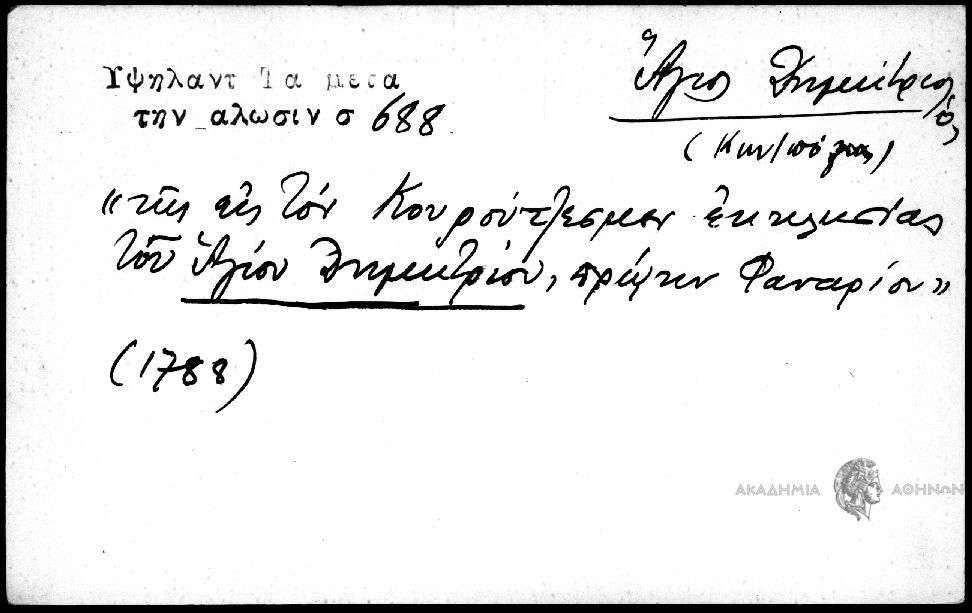 Υψηλαντ Τα μετα
την αλωσιν σ 688
Ἅγιος Δημήτριος,
ὁ
(Κων/πόλεως)
«τῆς εἰς τὸν Κουρούτζεσμεν ἐκκλησίας
τοῦ Ἁγίου Δημητρίου, πρώην Φαναρίου»
(1788)
ΑΚΑΔΗΜΙΑ ΑΘΗΝΩΝ